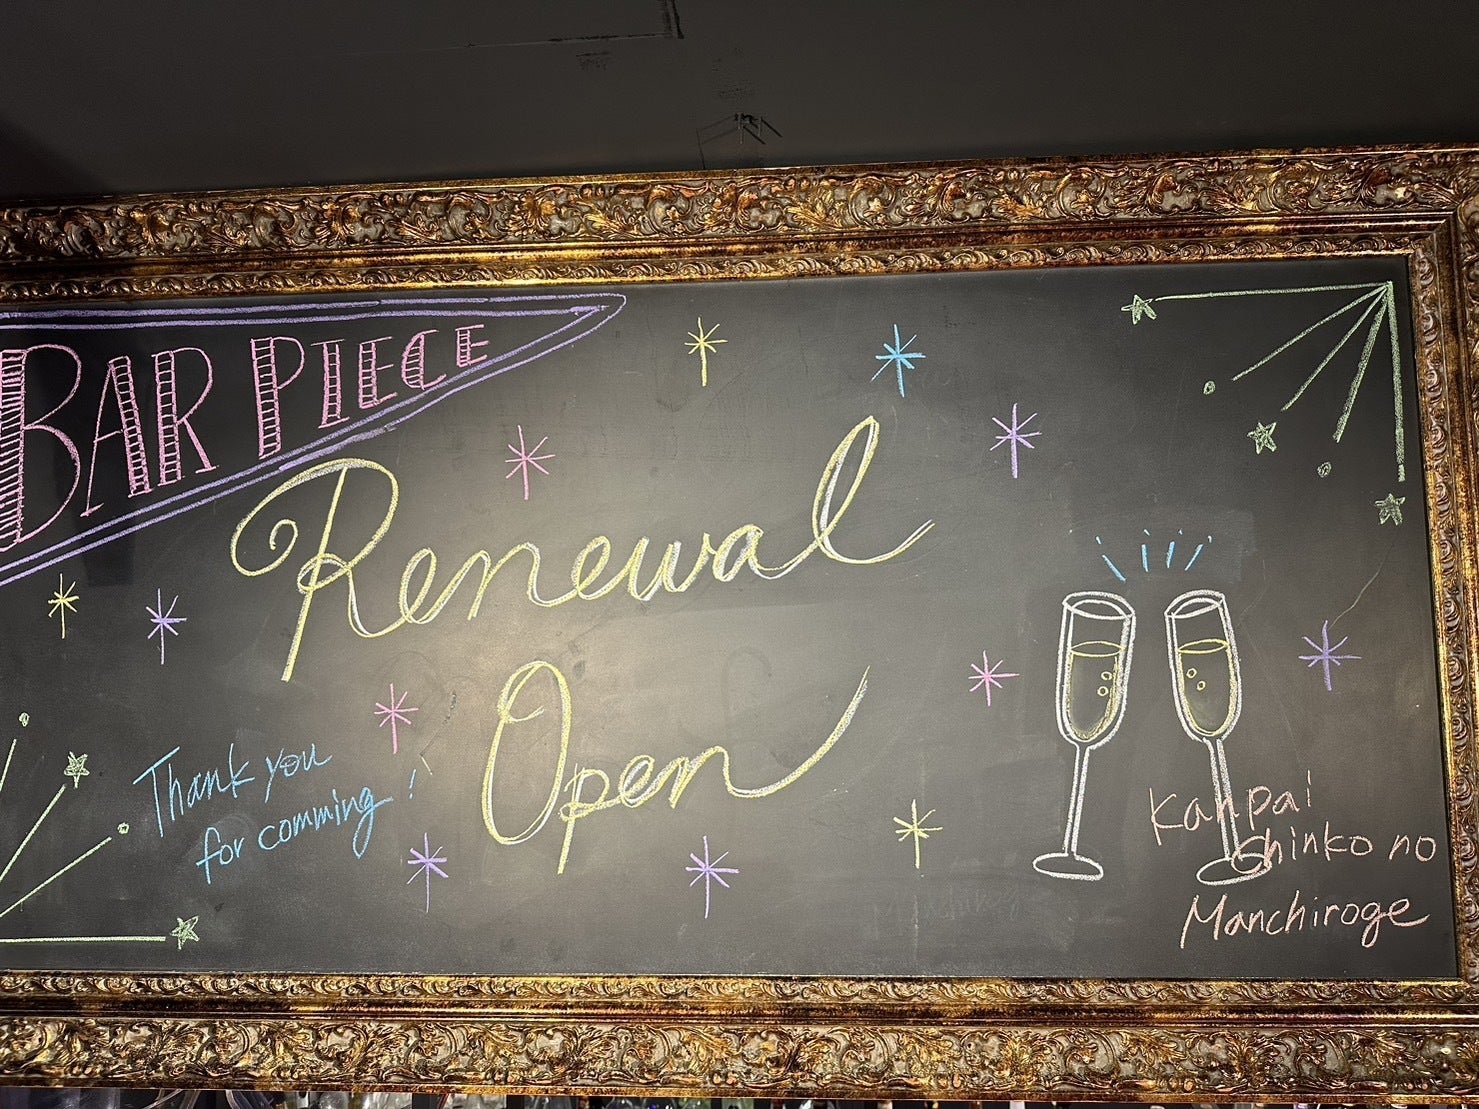 BAR PIECE
Renewal
Open
Thank you
for comming!
Kanpai
Chinko no
Manchiroge